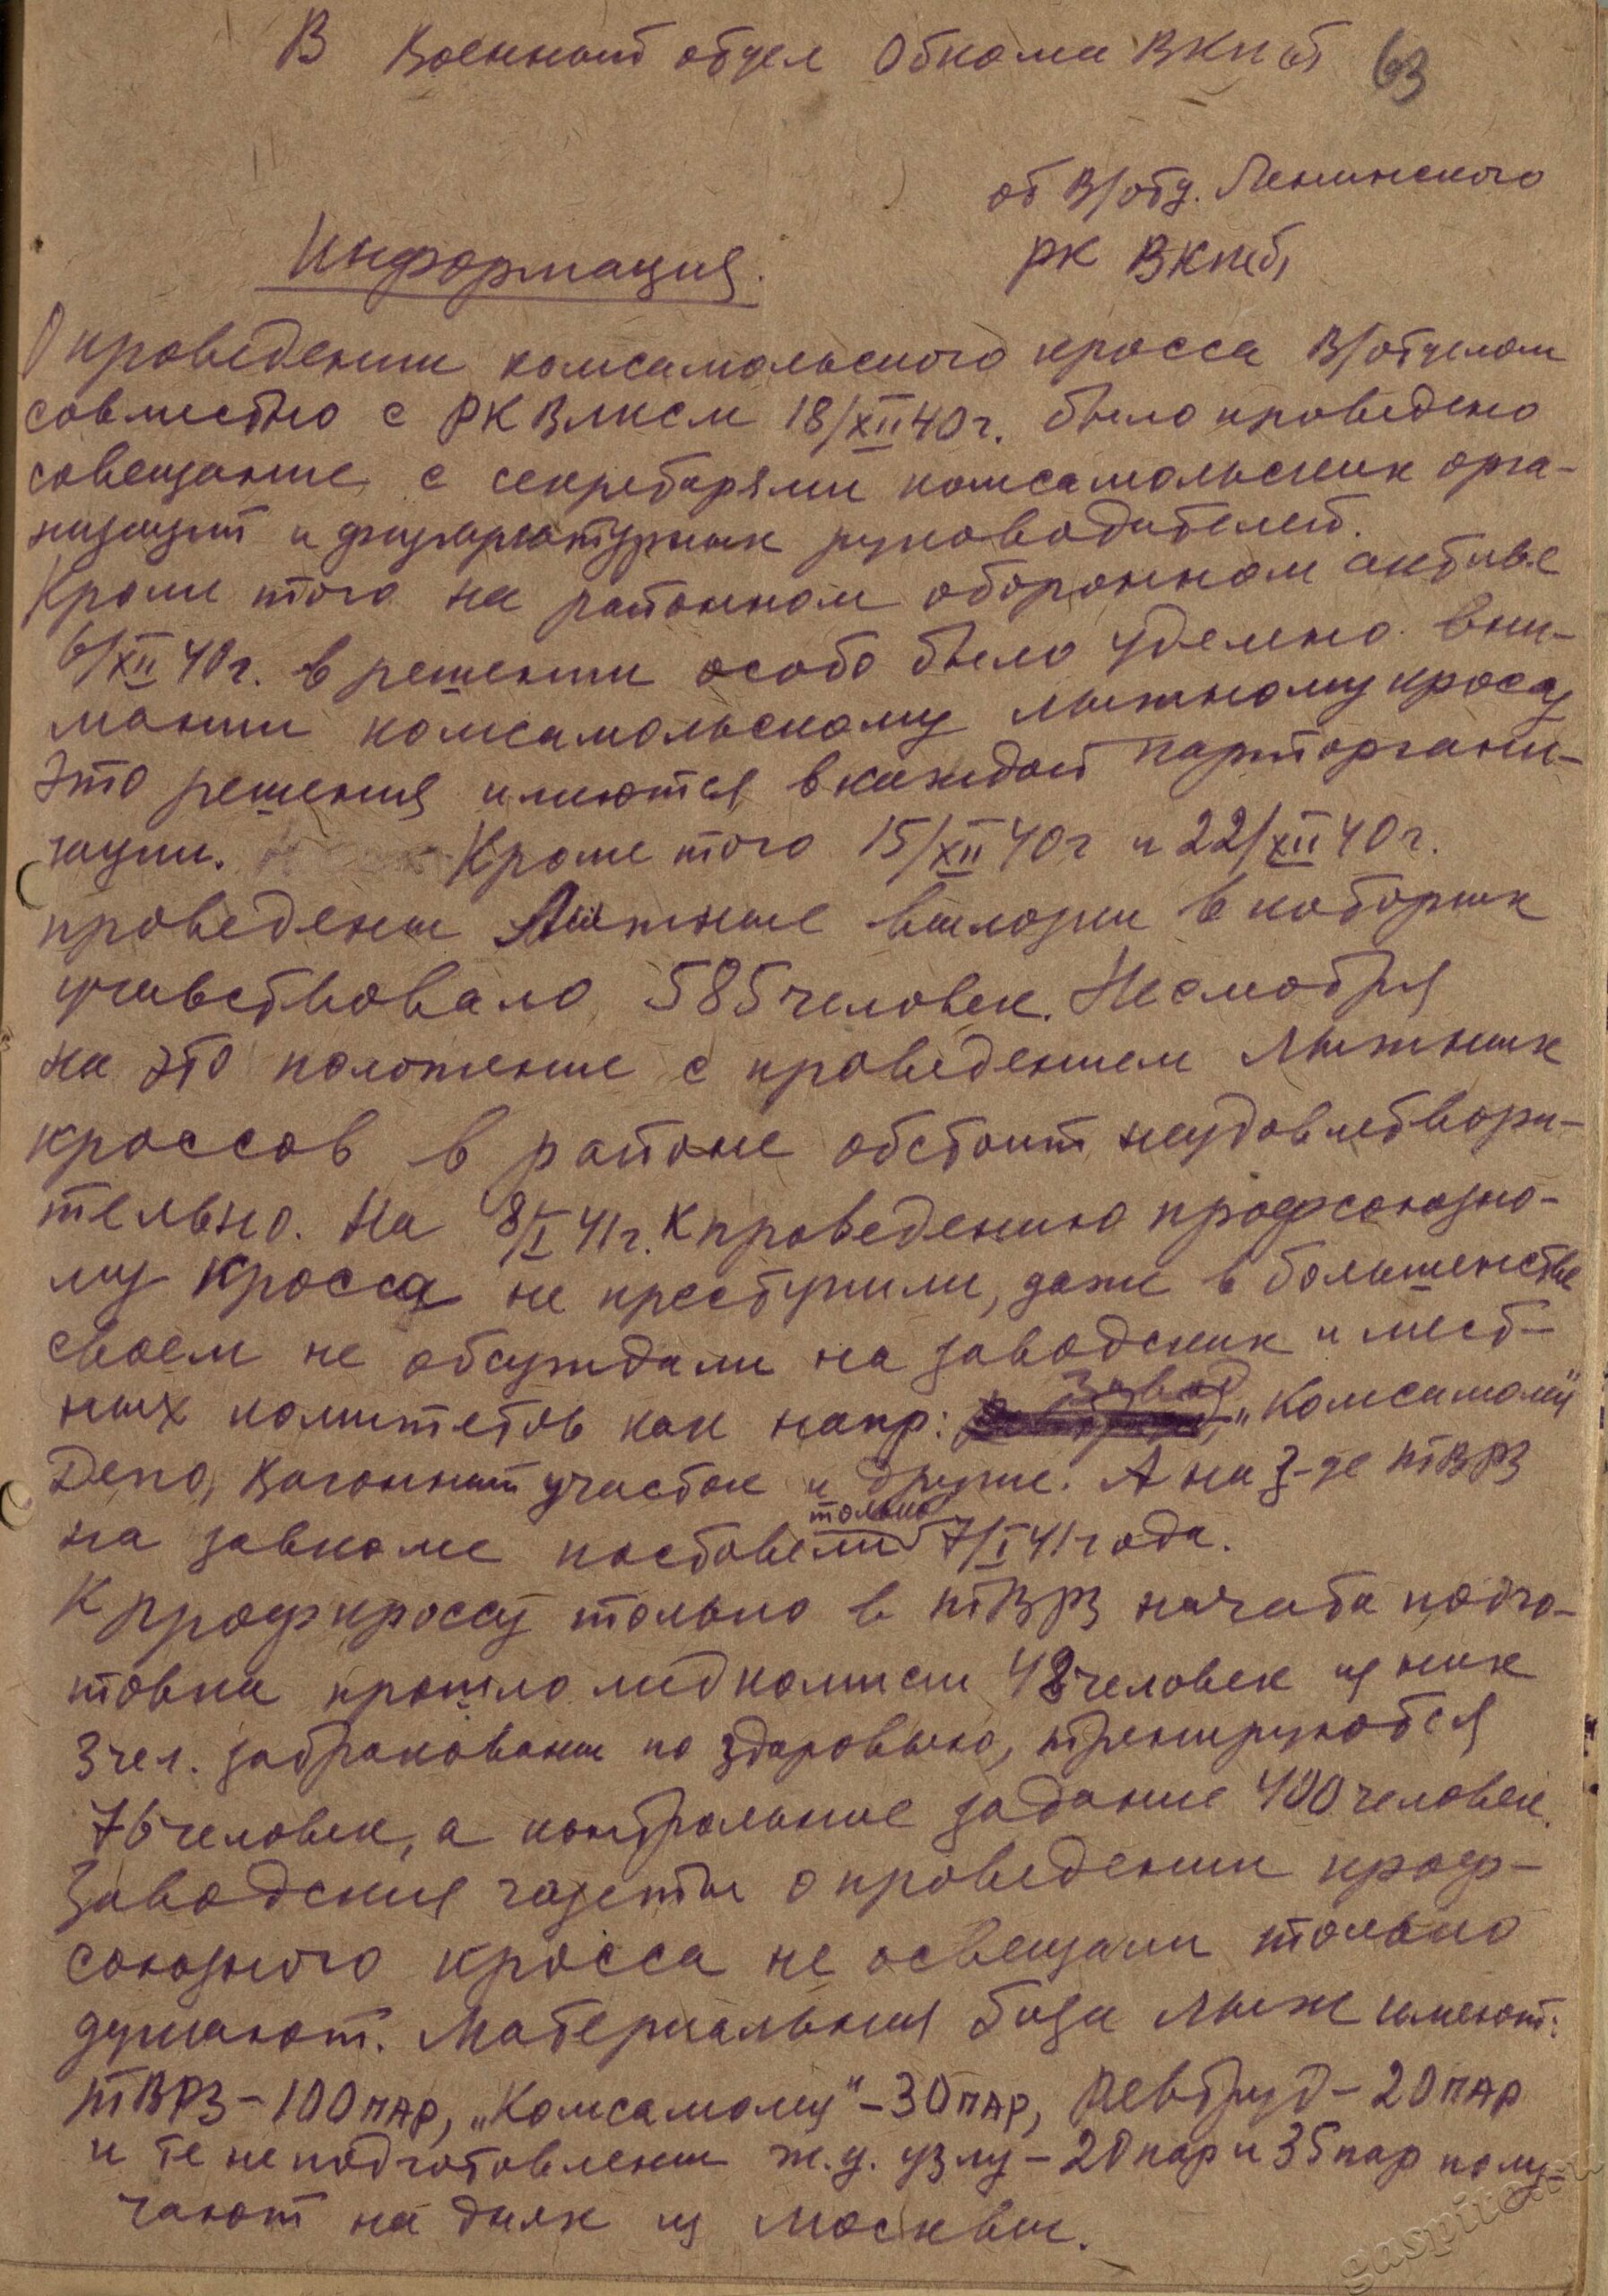 В Военный отдел Обкома ВКП(б) 63
от В/отд. Ленинского
РК ВКП(б)
Информация.
О проведении комсамольского кросса В/отделом
совместно с РК ВЛКСМ 18/XII 40 г. было проведено
совещание с секретарями комсамольских орга-
низаций и физкультурных руководителей.
Кроме того на районном оборонном активе
6/XII 40 г. в решении особо было уделено вни-
мании комсамольскому лыжному кросу
Это решения имеются в каждой парторгани-
зации. Кроме того 15/XII 40 г и 22/XII 40 г.
проведены Лыжные вылозки в которых
учавствовало 585 человек. Несмотря
на это положение с проведением лыжных
кроссов в районе обстоит неудовлетвори-
тельно. На 8/I 41 г. к проведению профсоюзно-
му кросса не преступили, даже в большенстве
своем не обсуждали на заводских и мест-
ных комитетов как напр: завод „Комсамолец"
Депо, Вагонный участок и другие. А на з-де ТВРЗ
на завкоме поставели только 7/I 41 года.
К профкроссу только в ТВРЗ начата подго-
товка прошло медкомисси 48 человек из них
3 чел. забракованы по здоровью, тренируются
76 человек, а контрольные задание 400 человек.
Заводския газеты о проведении проф-
союзного кросса не освещали только
думают. Материальная база лыж имеют:
ТВРЗ - 100 пар, „Комсамолец" - 30 пар, Ревтруд - 20 пар
и те не подготовлены ж.д. узлу - 20 пар и 35 пар полу-
чают на днях из Москвы.
gaspito.ru